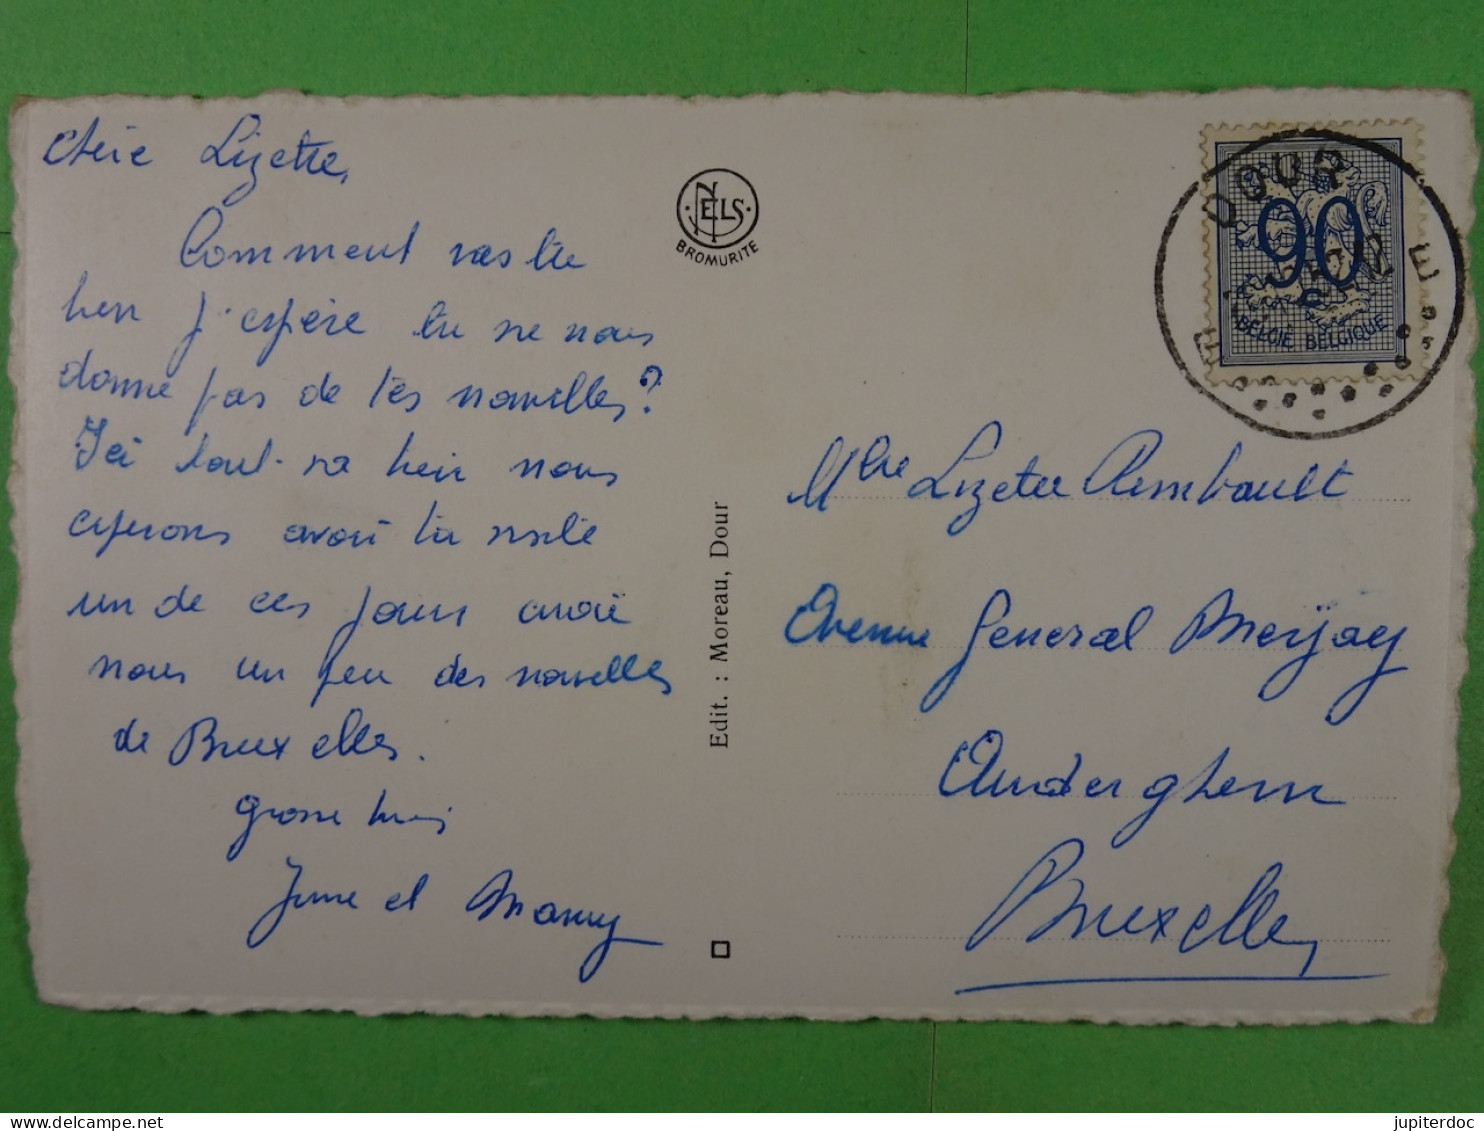 Chère Lizette,
Comment vas tu
bien j'espère tu ne nous
donne pas de tes nouvelles?
Ici tout va bien nous
esperons avoir ta visite
un de ces jours avoir
nous un peu des nouvelles
de Bruxelles.
grosse bises
et Mamy
NELS
BROMURITE
Edit. : Moreau, Dour
DOUR
90
BELGIE BELGIQUE
E E
Mlle Lizette Rimbault
Avenue General Meijay
Auderghem
Bruxelles
www.delcampe.net
jupiterdoc